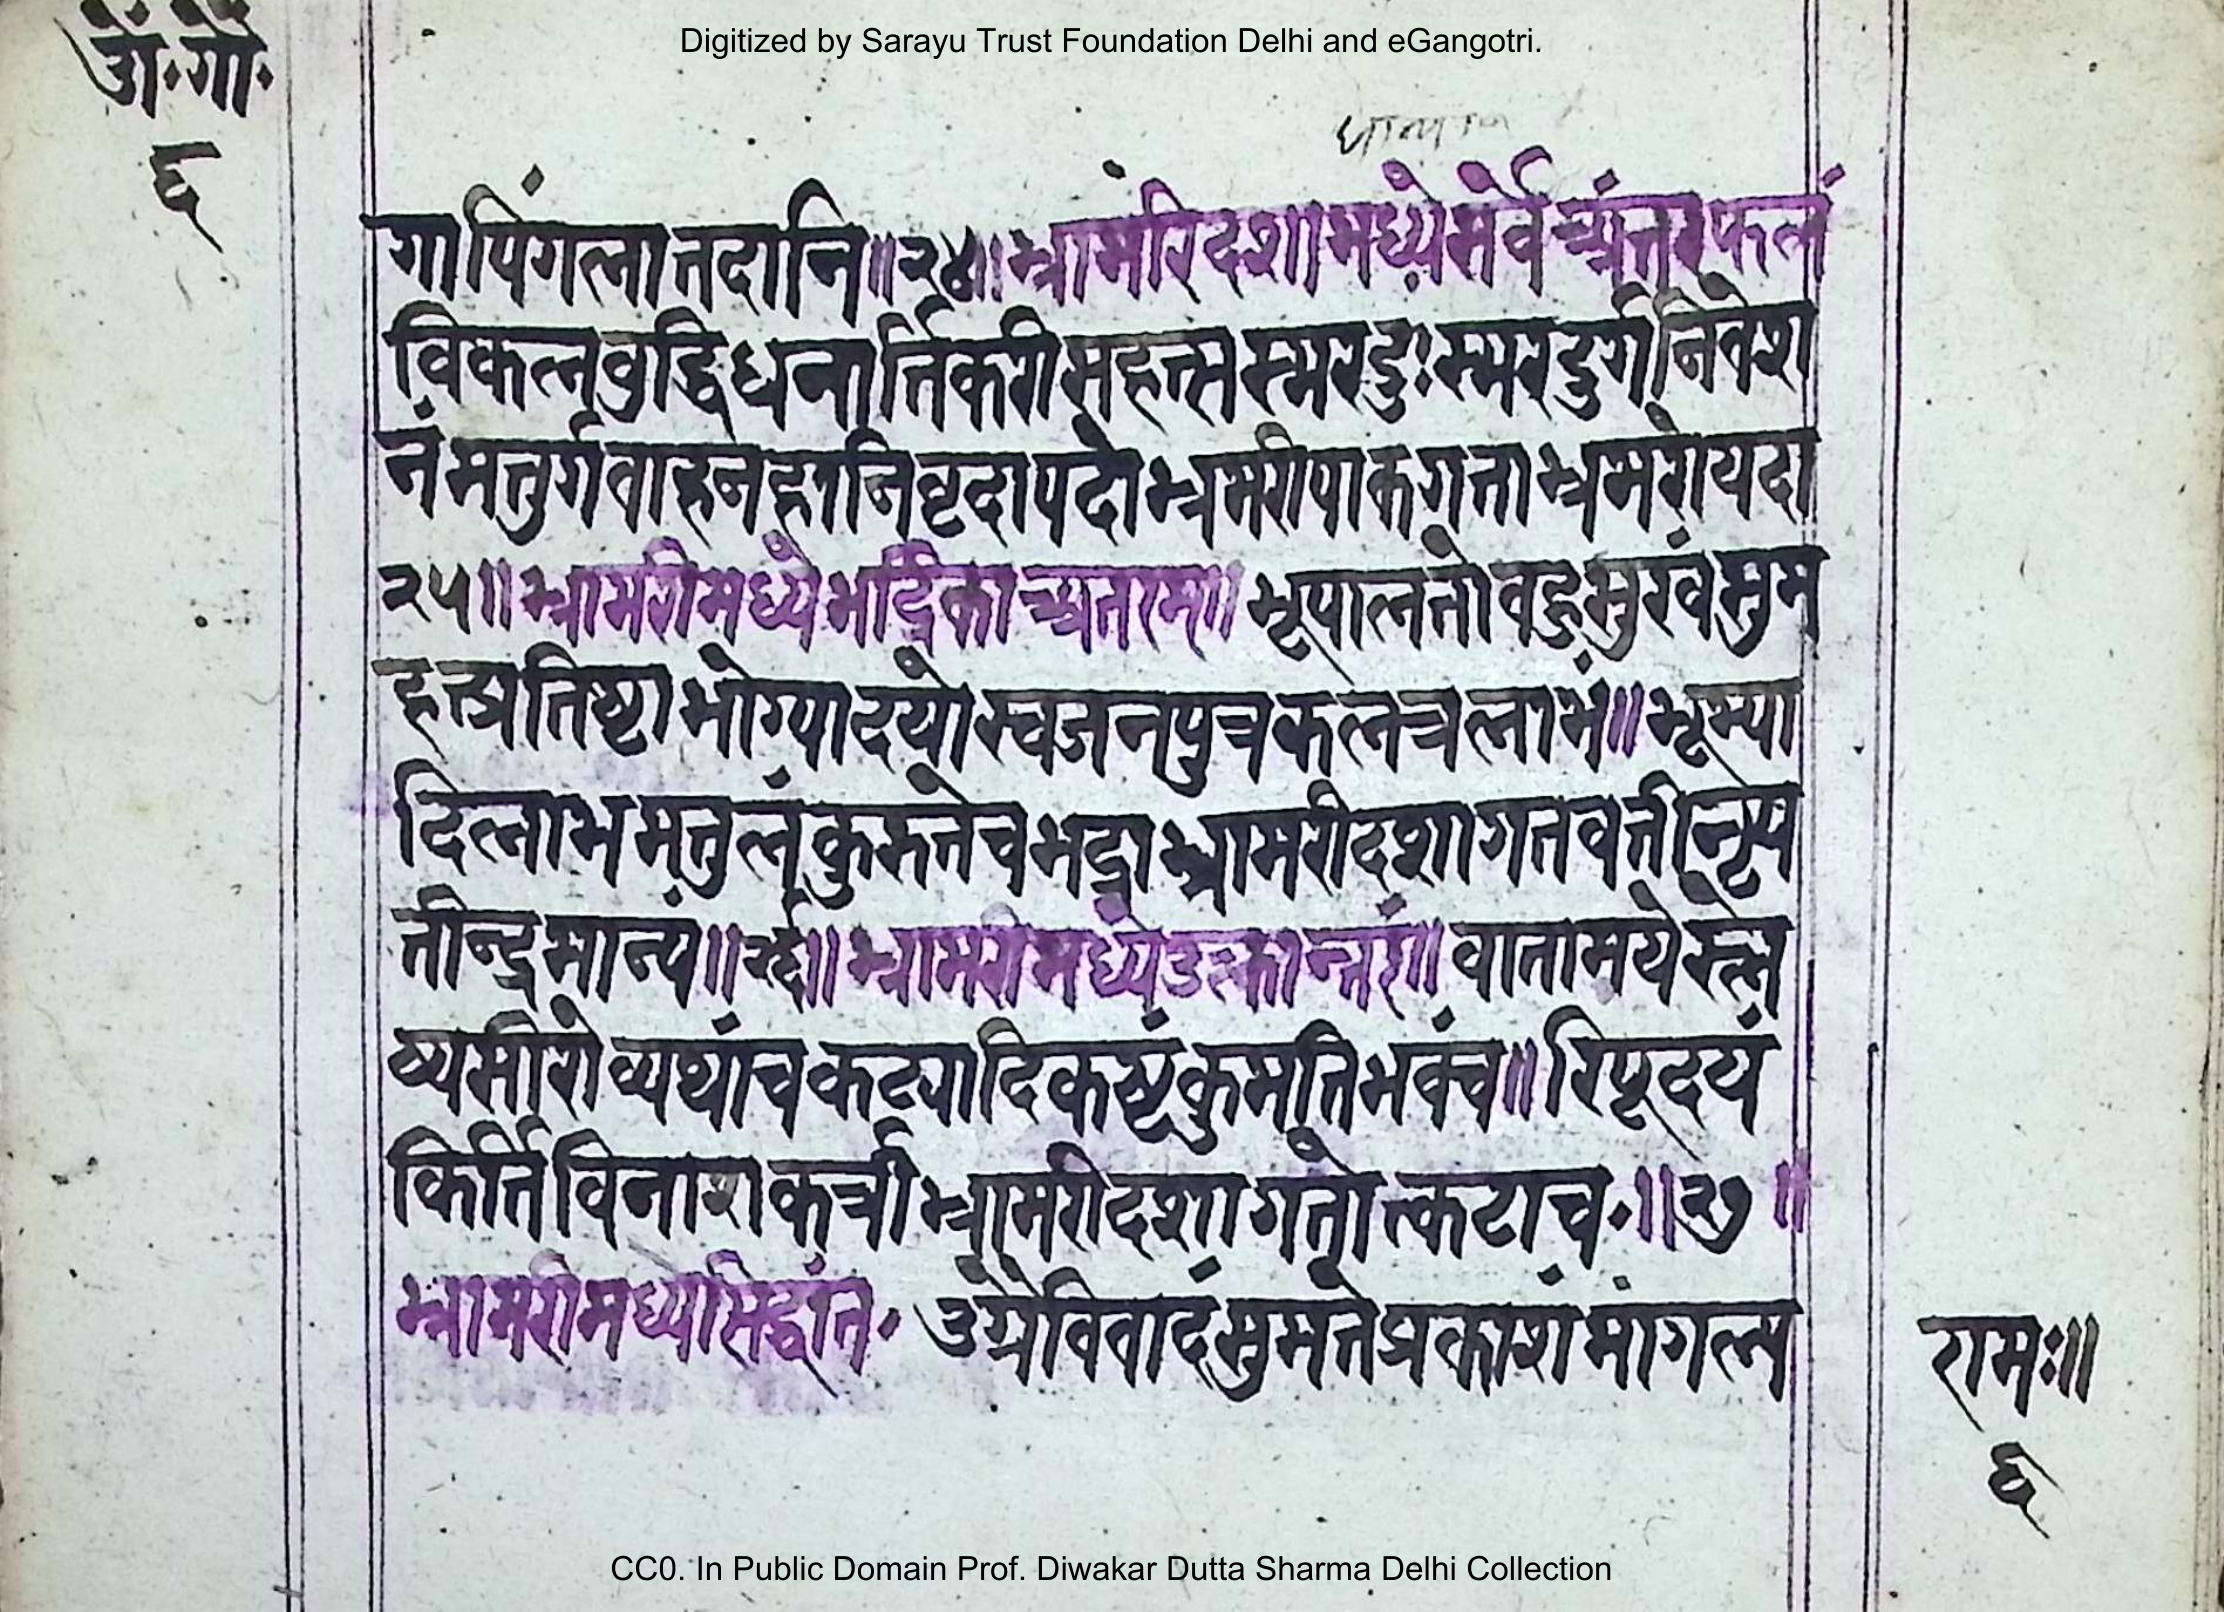 Digitized by Sarayu Trust Foundation Delhi and eGangotri.
ओं॰गो॰
६
गापिंगलात्तदानि॥२४॥भ्रामंरिदशामध्येसर्वेच्यंत्तरफलं
विकलवुद्धिधनार्त्तिकरीसहत्सस्मरदुःस्मरदुर्गनिवेश
नंमत्तुर्गवाहनहानिवृदापदोभ्रमरीपाकगत्ताभ्रमरोयदा
२५॥भ्रामरीमध्येभद्रिकाच्यतरम्॥भूपालत्तोवहुसुखंसुम
हत्प्रतिष्टाभोग्यादयोस्वजनपुत्रकलत्रलाभं॥भूम्या
दिलाभमत्तुलंकुरुत्तेचभद्राभ्रामरीदशागतवत्तीनृप
तीन्द्रमान्यं॥२६॥भ्रामरीमध्येउल्कान्त्तरं॥वातामयेस्त्ल
व्यसीरोव्यथांचकट्यादिकष्टंकुमतिभवंच॥रिपूदयं
किर्त्तिविनाशकर्त्रीभ्रामरीदशागत्तोत्कटाच॰॥२७॥
भ्रामरीमध्यसिद्धांत॰ उग्रेविवादंसुमत्तेप्रकाशंमांगल्य
रामः॥
६
CC0. In Public Domain Prof. Diwakar Dutta Sharma Delhi Collection